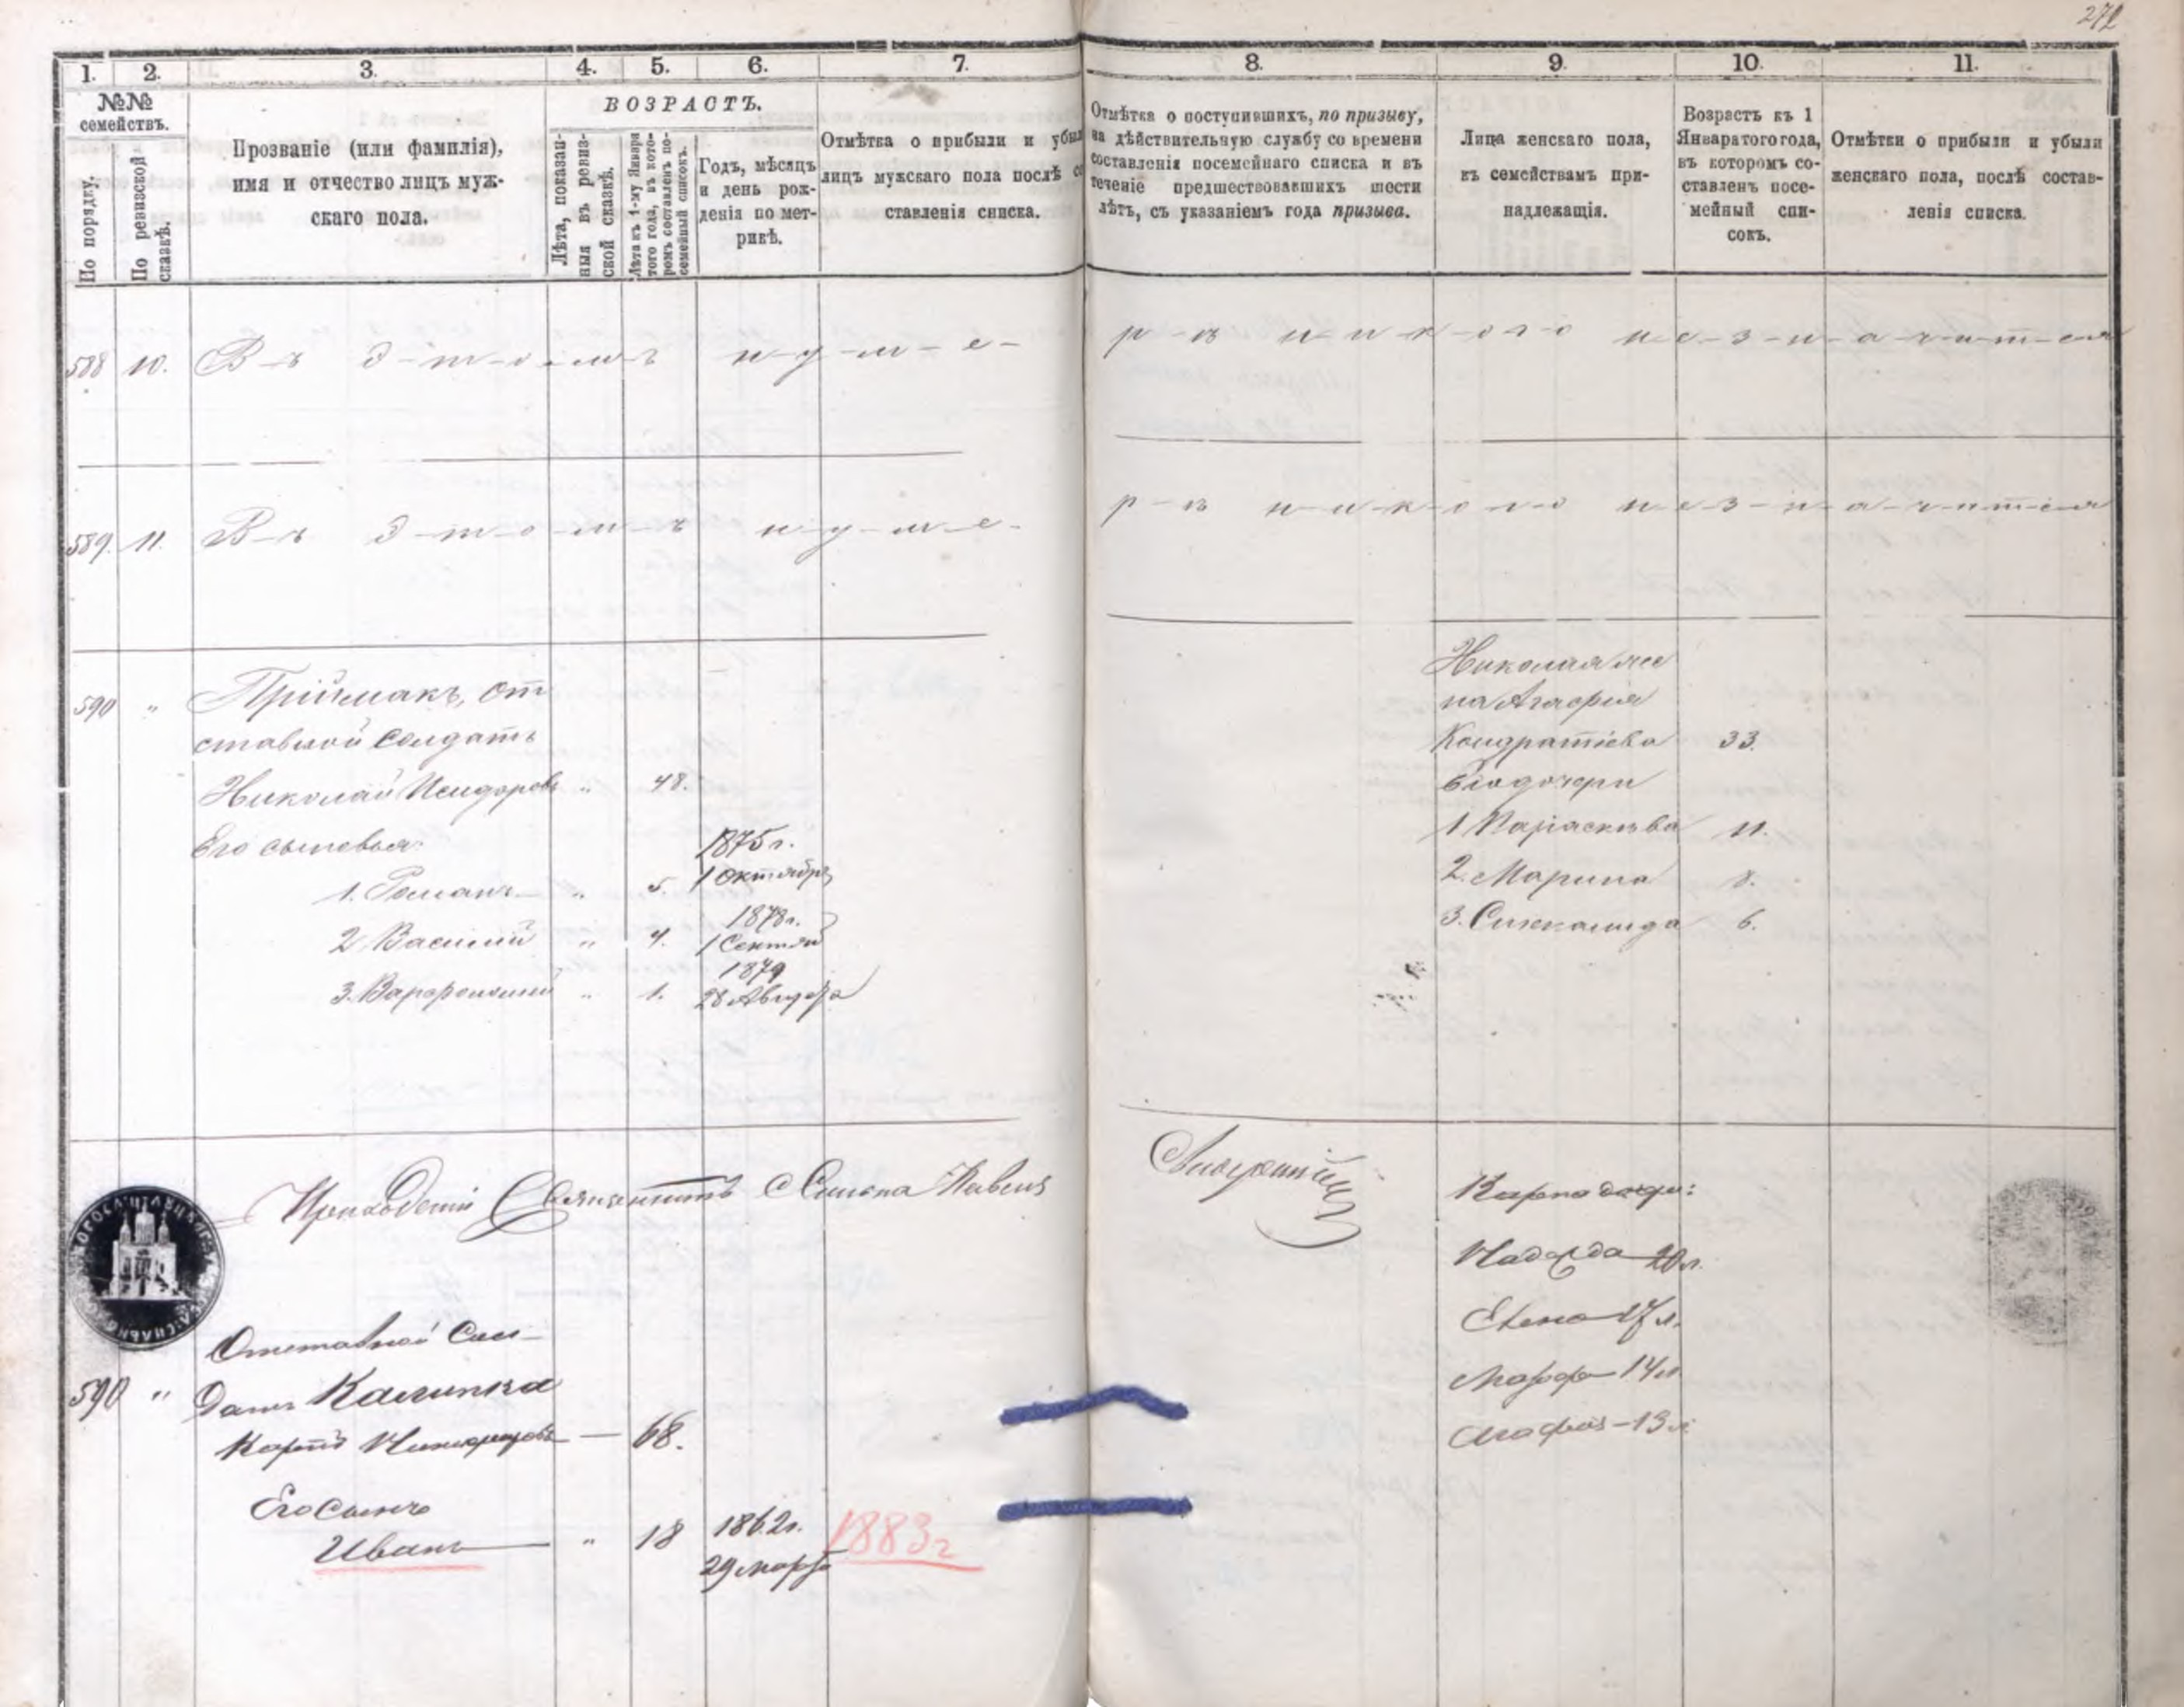 272
1. 2. 3. 4. 5. 6. 7. 8. 9. 10. 11.
№№ семействъ.
По порядку.
По ревизской сказкѣ.
Прозваніе (или фамилія),
имя и отчество лицъ муж-
скаго пола.
ВОЗРАСТЪ.
Лѣта, показан-
ныя въ ревиз-
ской сказкѣ.
Лѣта къ 1-му Января
того года, въ кото-
ромъ составленъ по-
семейный списокъ.
Годъ, мѣсяцъ
и день рож-
денія по мет-
рикѣ.
Отмѣтка о прибыли и убыл
лицъ мужскаго пола послѣ со
ставленія списка.
Отмѣтка о поступившихъ, по призыву,
на дѣйствительную службу со времени
составленія посемейнаго списка и въ
теченіе предшествовавшихъ шести
лѣтъ, съ указаніемъ года призыва.
Лица женскаго пола,
къ семействамъ при-
надлежащія.
Возрастъ къ 1
Января того года,
въ которомъ со-
ставленъ посе-
мейный спи-
сокъ.
Отмѣтки о прибыли и убыли
женскаго пола, послѣ состав-
ленія списка.
588 10. В-ъ э-т-о-м-ъ н-у-м-е- р-ѣ н-и-к-о-г-о н-е-з-н-а-ч-и-т-ся
589. 11. В-ъ э-т-о-м-ъ н-у-м-е- р-ѣ н-и-к-о-г-о н-е-з-н-а-ч-и-т-ся
590 " Приймакъ, от
ставной солдатъ
Николай Исидоровъ " 48.
Его сыновья:
1. Романъ " 5. 1875 г. 1 Октября
2. Василий " 4. 1878 г. 1 Сентяб
3. Варфоломей " 1. 1879 28 Августа
Николая же
на Агафия
Кондратіева 33.
Его дочери
1 Параскева 11.
2. Марина 8.
3. 6.
Приходскій Священникъ Павелъ
590 " Отставной Сол-
датъ Калинка
Карпъ — 68.
Его сынъ
Иванъ " 18 1862 г. 29 марта 1883 г
Карпа дочери:
Надежда 20 л.
Елена 17 л.
Марфа 14 л
Агафія - 13 л